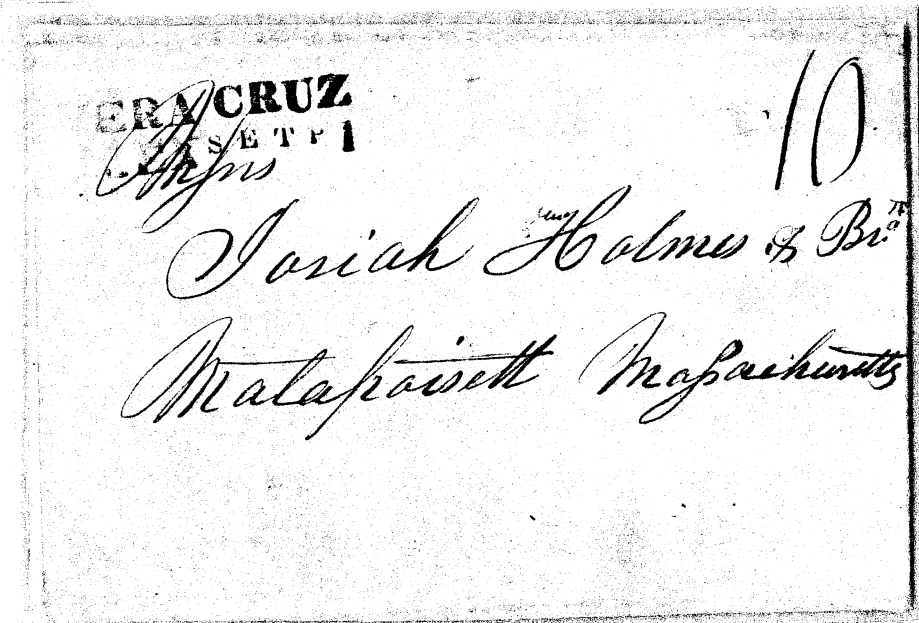 ERA CRUZ 10
SETP 1
Messrs
Josiah Holmes & Bro
Matapoisett Massachusetts